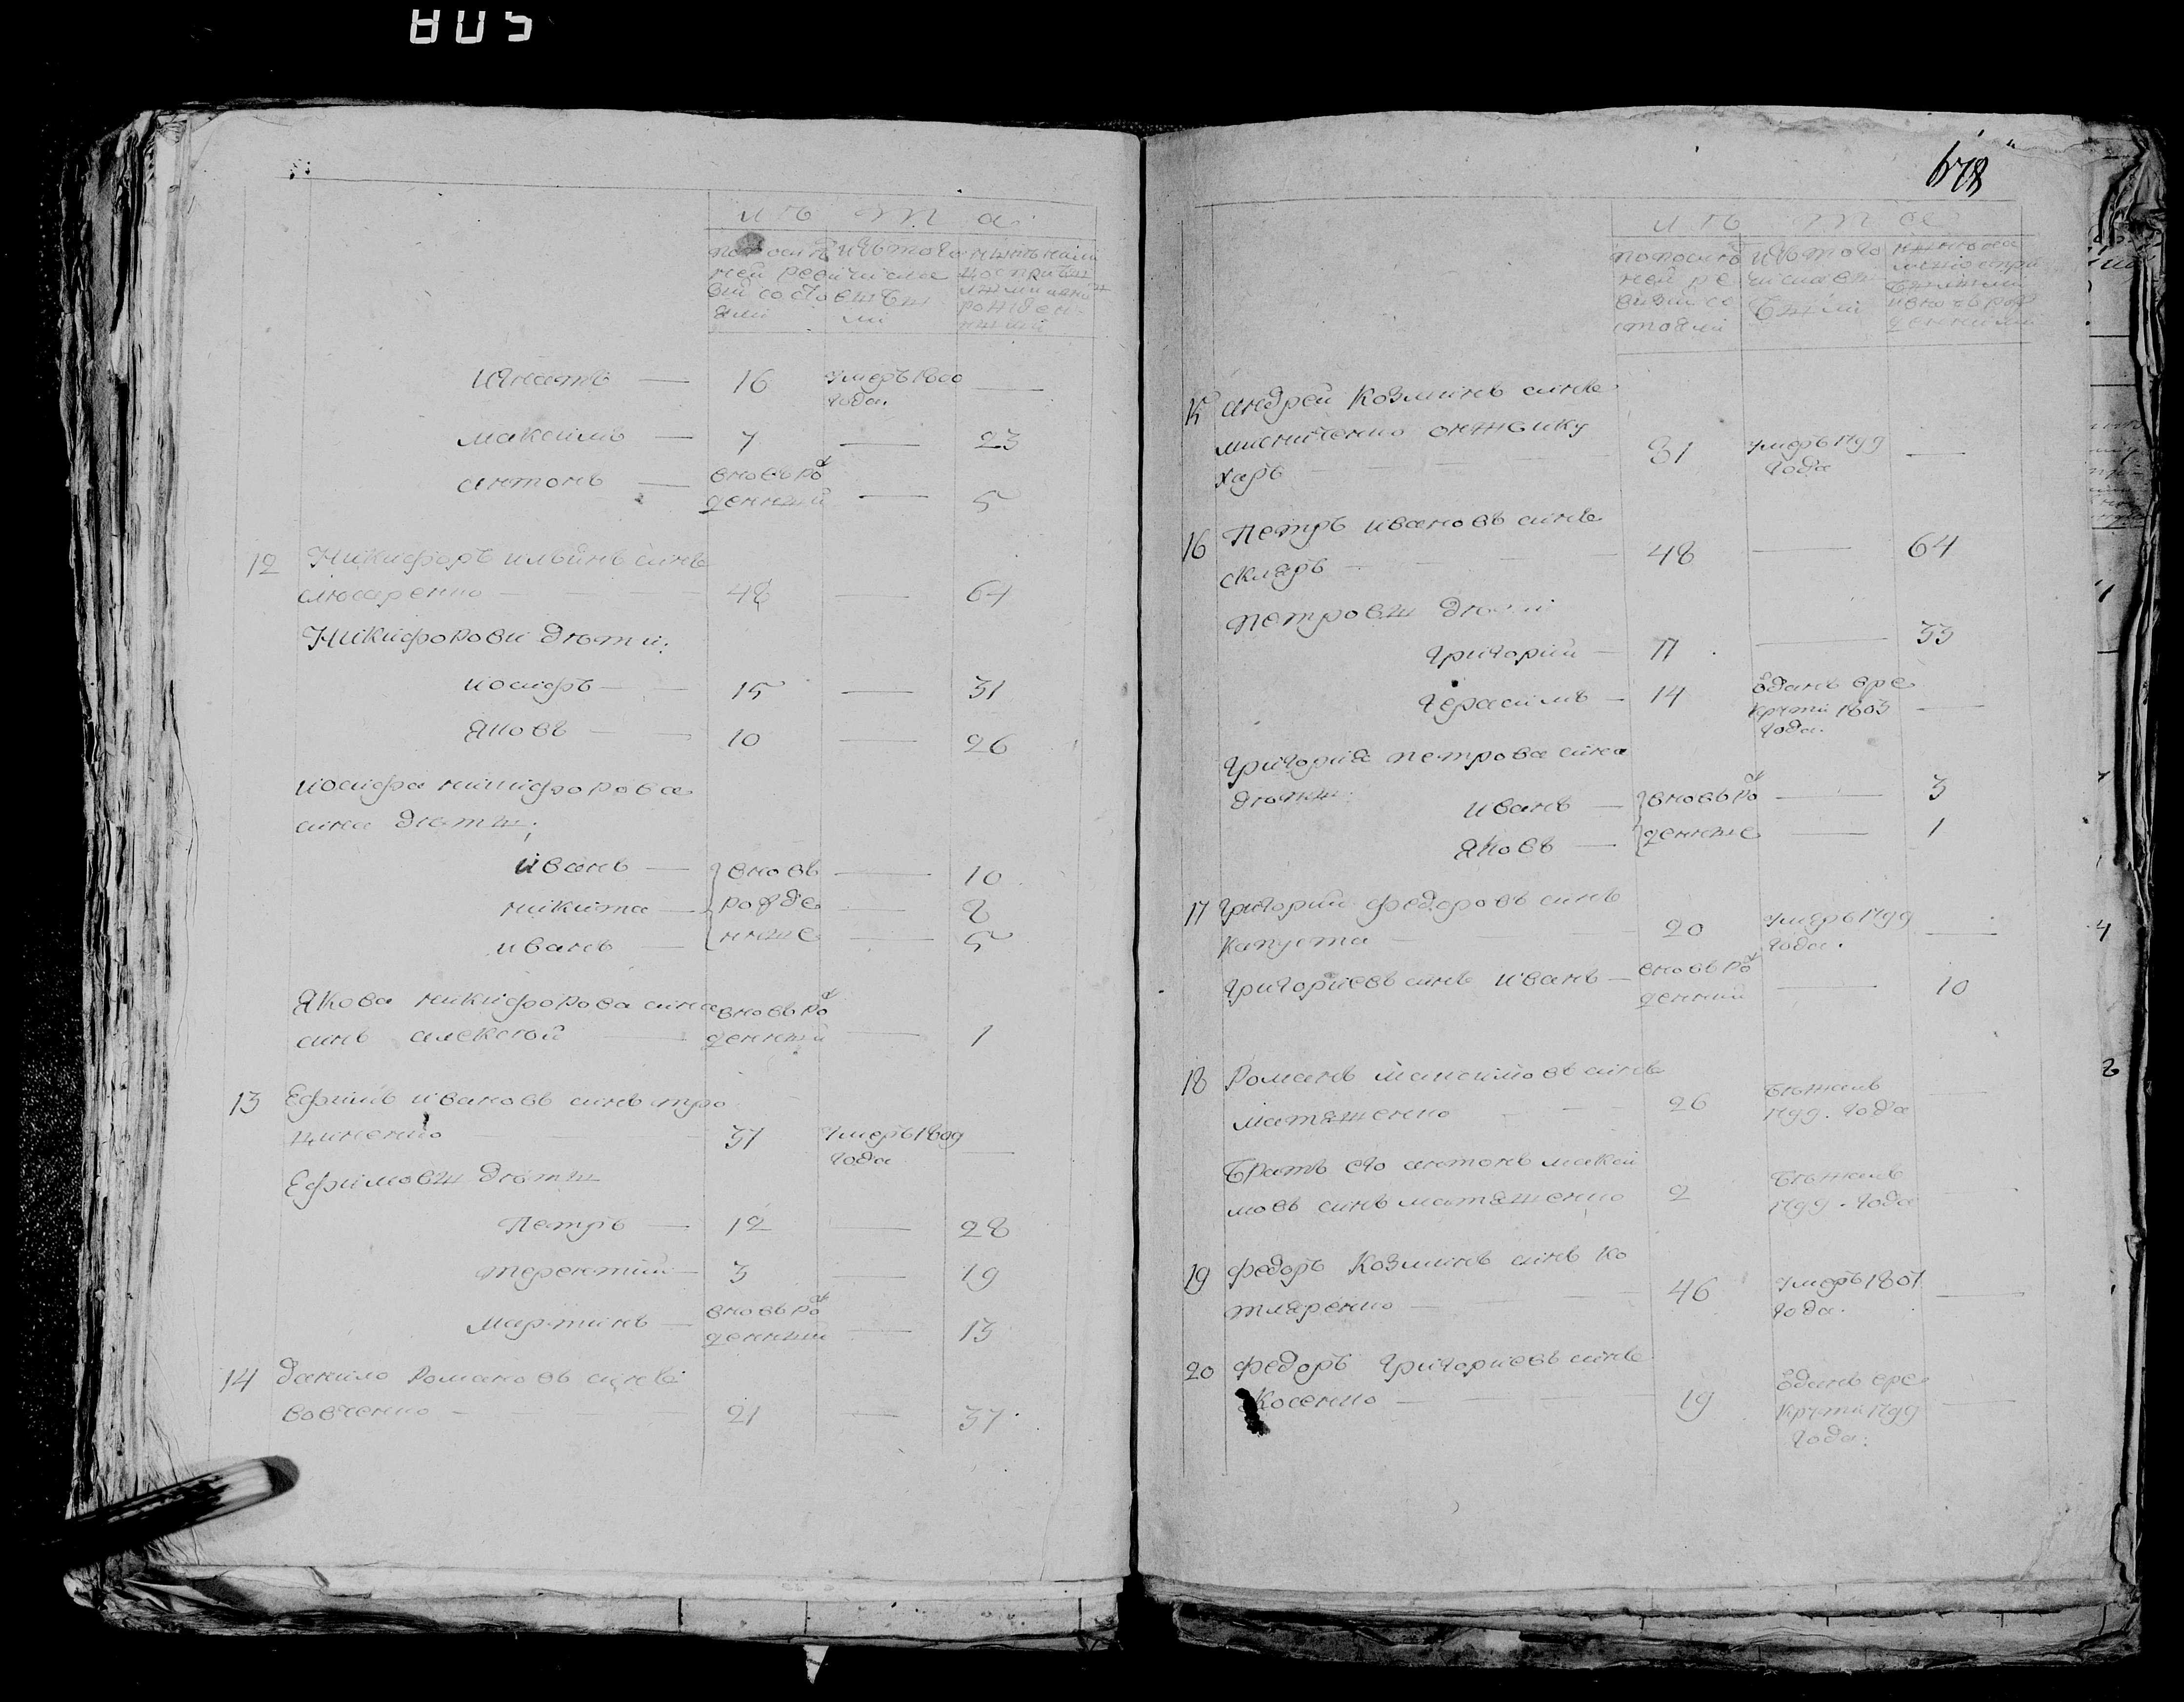 805
лѣта
по послѣд
ней реви
зіи состо
яли
изъ того
числа
выбы
ли
Игнатъ — 16 умеръ 1800 —
года.
Максимъ — 7 — 23
Антонъ — вновь рож
денный — 5
12 Никифоръ Ильинъ синъ
слюсаренко — 48 — 64
Никифорови дѣти:
Иосифъ — 15 — 31
Яковъ — 10 — 26
Иосифа никифорова
сина дѣты;
Иванъ — вновь — 10
никита — рожде — 8
иванъ — нные — 5
Якова никифорова сина вновь рож
синъ алексѣй денный — 1
13 Ефимъ ивановъ синъ тро
цненко 37 умеръ 1809 —
года
Ефимовы дѣты
Петръ — 12 — 28
терентий — 3 — 19
мартинъ — вновь рож
денный — 13
14 данило романовъ синъ
вовченко — 21 — 37.
678
лѣта
по послѣд
ней ре
визіи со
стояли
изъ того
числа в
были
15 андрей Козминъ синъ
мисниченко онже ку
харъ — 31 умеръ 1799 —
года
16 Петръ ивановъ синъ
скляръ — 48 — 64
петровы дѣти
григорий — 17 — 33
герасимъ — 14 отданъ в ре
крути 1803 —
года.
григорія петрова сина
дѣты:
иванъ — вновь рож — 3
яковъ — денные — 1
17 григорий федоровъ синъ
капуста — 20 умеръ 1799 —
года.
григориевъ синъ иванъ — вновь рож
денний — 10
18 романъ максимовъ синъ
матяшенко 26 бѣжалъ —
1799. года
братъ его антонъ макси
мовъ синъ матяшенко 2 бѣжалъ
1799. года
19 федоръ Козминъ синъ ко
тляренко — 46 умеръ 1801 —
года.
20 федоръ григориевъ синъ
Косенко — 19 отданъ в ре
крути 1799 —
года: